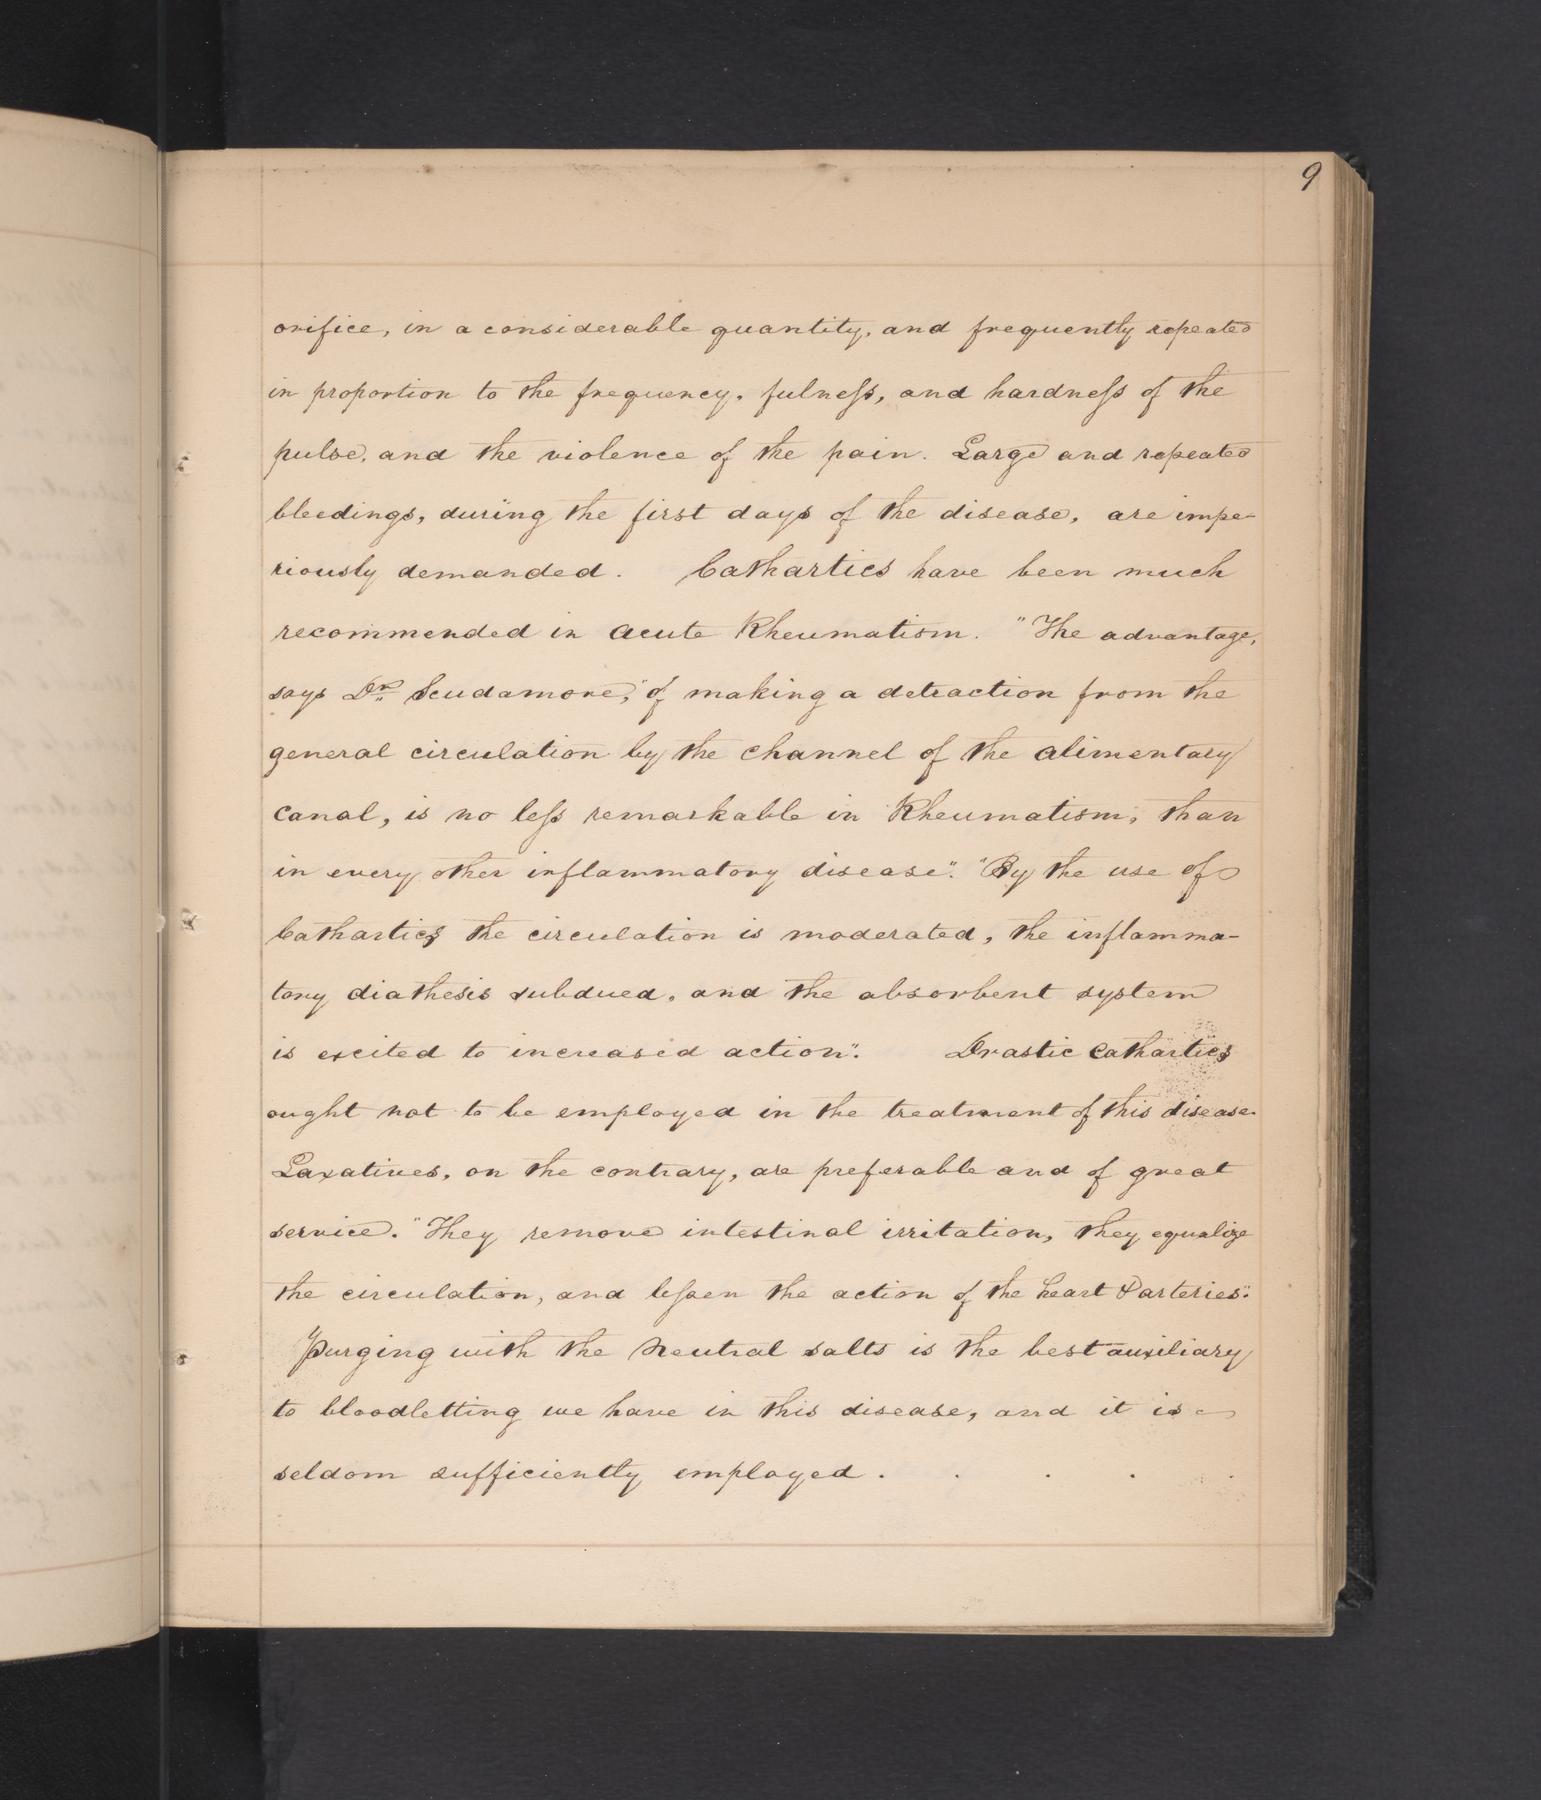 9
orifice, in a considerable quantity, and frequently repeated
in proportion to the frequency, fulneſs, and hardneſs of the
pulse, and the violence of the pain. Large and repeated
bleedings, during the first days of the disease, are impe-
riously demanded. Cathartics have been much
recommended in acute Rheumatism. "The advantage,
says Dr. Scudamore," of making a detraction from the
general circulation by the channel of the alimentary
canal, is no leſs remarkable in Rheumatism, than
in every other inflammatory disease". "By the use of
Cathartics the circulation is moderated, the inflamma-
tory diathesis subdued, and the absorbent system
is excited to increased action". Drastic Cathartics
ought not to be employed in the treatment of this disease.
Laxatives, on the contrary, are preferable and of great
service. "They remove intestinal irritation, they equalize
the circulation, and leſsen the action of the heart & arteries".
Purging with the Neutral salts is the best auxiliary
to bloodletting we have in this disease, and it is
seldom sufficiently employed . . . . .